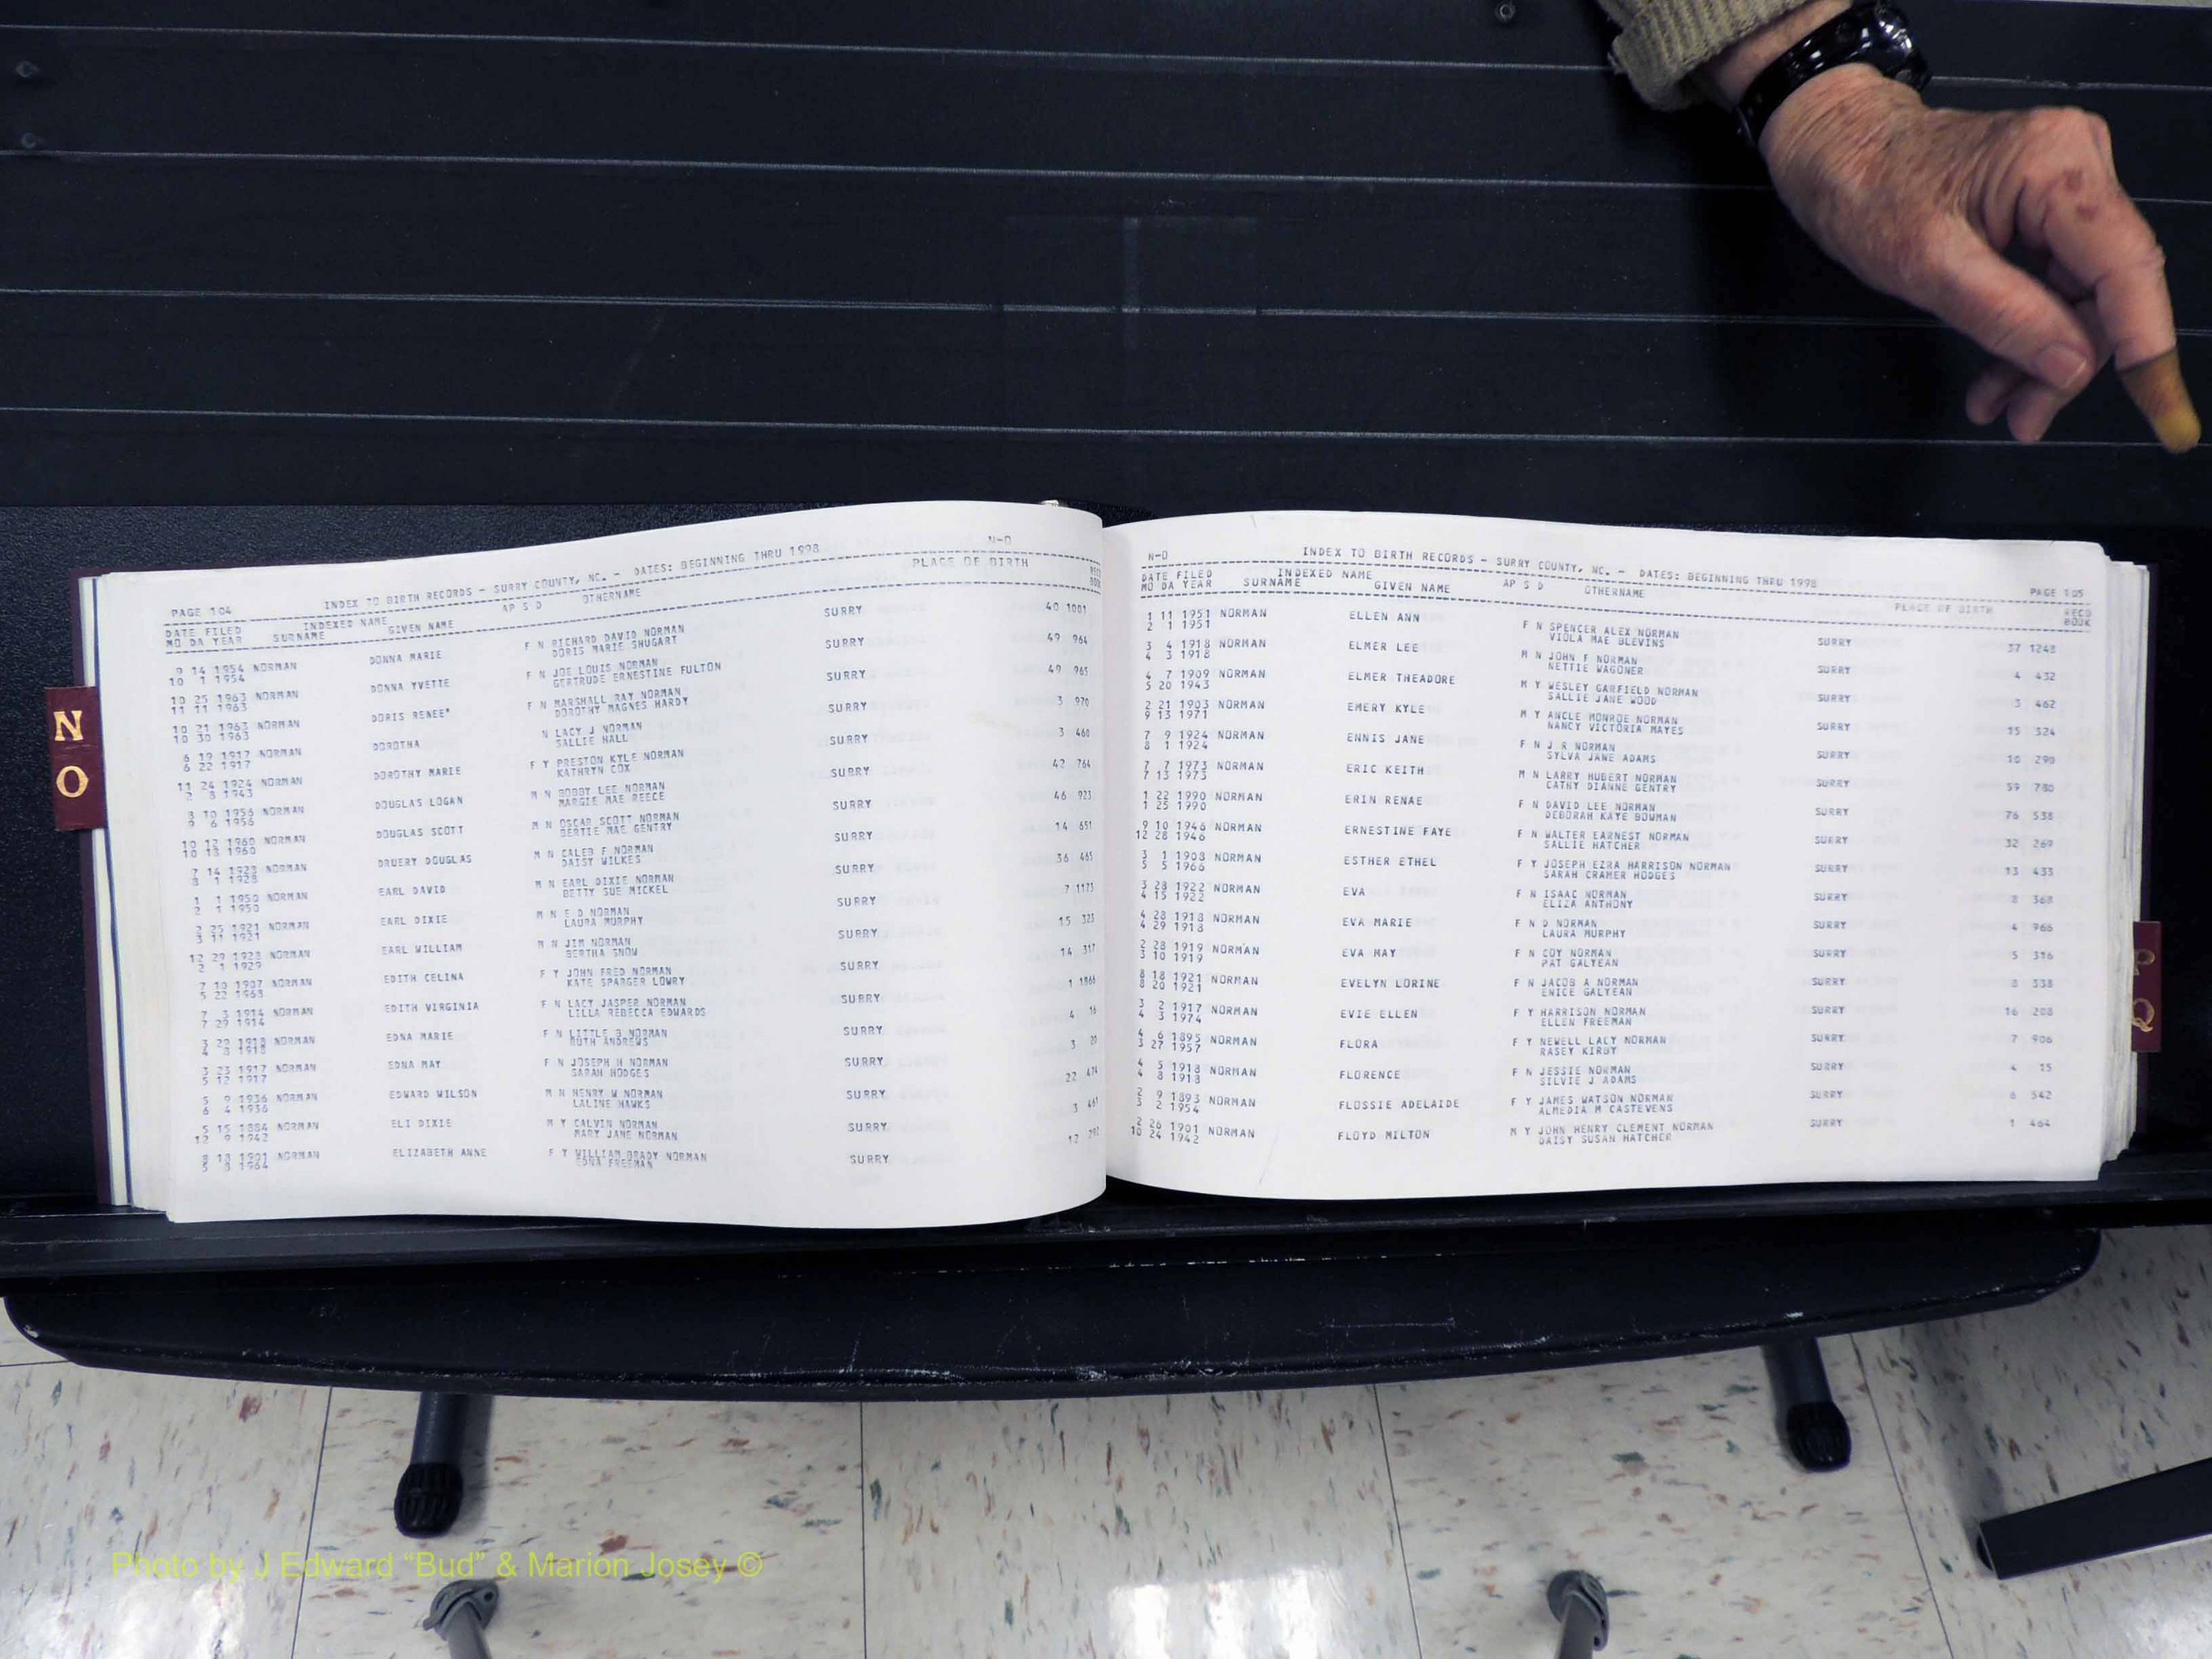 N
O
PAGE 104 INDEX TO BIRTH RECORDS - SURRY COUNTY, NC. - DATES: BEGINNING THRU 1998 N-O
DATE FILED INDEXED NAME AP S D OTHERNAME PLACE OF BIRTH RECD
MO DA YEAR SURNAME GIVEN NAME BOOK
9 14 1954 NORMAN DONNA MARIE F N RICHARD DAVID NORMAN SURRY 40 1001
10 1 1954 DORIS MARIE SHUGART
10 25 1963 NORMAN DONNA YVETTE F N JOE LOUIS NORMAN SURRY 49 964
11 11 1963 GERTRUDE ERNESTINE FULTON
10 21 1963 NORMAN DORIS RENEE* F N MARSHALL RAY NORMAN SURRY 49 965
10 30 1963 DOROTHY MAGNES HARDY
6 19 1917 NORMAN DOROTHA N LACY J NORMAN SURRY 3 970
6 22 1917 SALLIE HALL
11 24 1924 NORMAN DOROTHY MARIE F Y PRESTON KYLE NORMAN SURRY 3 460
2 8 1943 KATHRYN COX
8 10 1956 NORMAN DOUGLAS LOGAN M N BOBBY LEE NORMAN SURRY 42 764
9 6 1956 MARGIE MAE REECE
10 12 1960 NORMAN DOUGLAS SCOTT M N OSCAR SCOTT NORMAN SURRY 46 923
10 13 1960 BERTIE MAE GENTRY
7 14 1928 NORMAN DRUERY DOUGLAS M N CALEB F NORMAN SURRY 14 651
8 1 1928 DAISY WILKES
1 1 1950 NORMAN EARL DAVID M N EARL DIXIE NORMAN SURRY 36 465
2 1 1950 BETTY SUE MICKEL
2 25 1921 NORMAN EARL DIXIE M N E D NORMAN SURRY 7 1173
3 11 1921 LAURA MURPHY
12 29 1928 NORMAN EARL WILLIAM M N JIM NORMAN SURRY 15 323
2 1 1929 BERTHA SNOW
7 10 1907 NORMAN EDITH CELINA F Y JOHN FRED NORMAN SURRY 14 317
5 22 1963 KATE SPARGER LOWRY
7 3 1914 NORMAN EDITH VIRGINIA F N LACY JASPER NORMAN SURRY 1 1866
7 29 1914 LILLA REBECCA EDWARDS
3 20 1918 NORMAN EDNA MARIE F N LITTLE B NORMAN SURRY 4 16
4 8 1918 RUTH ANDREWS
3 23 1917 NORMAN EDNA MAY F N JOSEPH H NORMAN SURRY 3 20
5 12 1917 SARAH HODGES
5 9 1936 NORMAN EDWARD WILSON M N HENRY W NORMAN SURRY 22 474
6 4 1936 LALINE HAWKS
5 15 1884 NORMAN ELI DIXIE M Y CALVIN NORMAN SURRY 3 461
12 9 1942 MARY JANE NORMAN
8 18 1901 NORMAN ELIZABETH ANNE F Y WILLIAM BRADY NORMAN SURRY 12 292
5 8 1964 EDNA FREEMAN
N-O INDEX TO BIRTH RECORDS - SURRY COUNTY, NC. - DATES: BEGINNING THRU 1998 PAGE 105
DATE FILED INDEXED NAME AP S D OTHERNAME PLACE OF BIRTH RECD
MO DA YEAR SURNAME GIVEN NAME BOOK
1 11 1951 NORMAN ELLEN ANN F N SPENCER ALEX NORMAN SURRY 37 1248
2 1 1951 VIOLA MAE BLEVINS
3 4 1918 NORMAN ELMER LEE M N JOHN F NORMAN SURRY 4 432
4 3 1918 NETTIE WAGONER
4 7 1909 NORMAN ELMER THEADORE M Y WESLEY GARFIELD NORMAN SURRY 3 462
5 20 1943 SALLIE JANE WOOD
2 21 1903 NORMAN EMERY KYLE M Y ANCLE MONROE NORMAN SURRY 15 324
9 13 1971 NANCY VICTORIA MAYES
7 9 1924 NORMAN ENNIS JANE F N J R NORMAN SURRY 10 290
8 1 1924 SYLVA JANE ADAMS
7 7 1973 NORMAN ERIC KEITH M N LARRY HUBERT NORMAN SURRY 59 780
7 13 1973 CATHY DIANNE GENTRY
1 22 1990 NORMAN ERIN RENAE F N DAVID LEE NORMAN SURRY 76 538
1 25 1990 DEBORAH KAYE BOWMAN
9 10 1946 NORMAN ERNESTINE FAYE F N WALTER EARNEST NORMAN SURRY 32 269
12 28 1946 SALLIE HATCHER
3 1 1908 NORMAN ESTHER ETHEL F Y JOSEPH EZRA HARRISON NORMAN SURRY 13 433
5 5 1966 SARAH CRAMER HODGES
3 28 1922 NORMAN EVA F N ISAAC NORMAN SURRY 8 368
4 15 1922 ELIZA ANTHONY
4 28 1918 NORMAN EVA MARIE F N D NORMAN SURRY 4 966
4 29 1918 LAURA MURPHY
2 28 1919 NORMAN EVA MAY F N COY NORMAN SURRY 5 316
3 10 1919 PAT GALYEAN
8 18 1921 NORMAN EVELYN LORINE F N JACOB A NORMAN SURRY 8 338
8 20 1921 ENICE GALYEAN
3 2 1917 NORMAN EVIE ELLEN F Y HARRISON NORMAN SURRY 16 208
4 3 1974 ELLEN FREEMAN
4 6 1895 NORMAN FLORA F Y NEWELL LACY NORMAN SURRY 7 906
3 27 1957 RASEY KIRBY
4 5 1918 NORMAN FLORENCE F N JESSIE NORMAN SURRY 4 15
4 8 1918 SILVIE J ADAMS
2 9 1893 NORMAN FLOSSIE ADELAIDE F Y JAMES WATSON NORMAN SURRY 6 542
3 2 1954 ALMEDIA M CASTEVENS
2 26 1901 NORMAN FLOYD MILTON M Y JOHN HENRY CLEMENT NORMAN SURRY 1 464
10 24 1942 DAISY SUSAN HATCHER
Q
Photo by J Edward “Bud” & Marion Josey ©